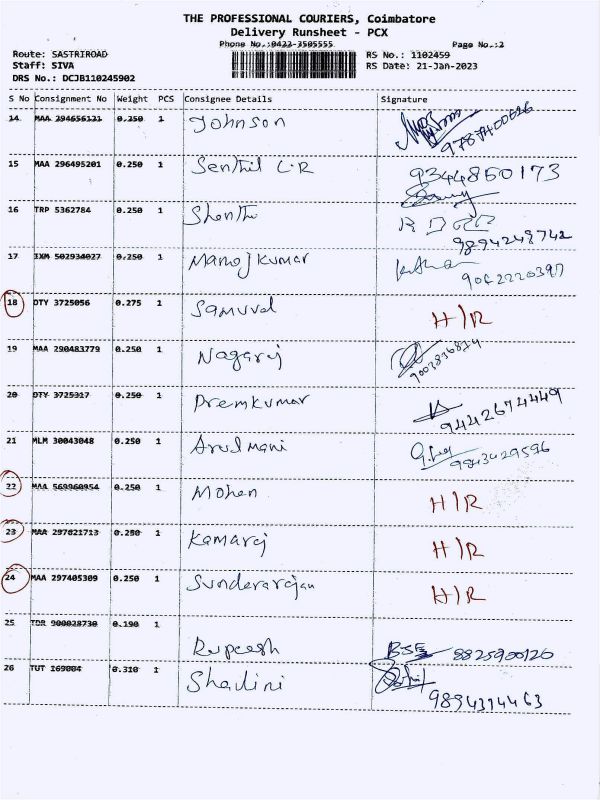 THE PROFESSIONAL COURIERS, Coimbatore
Delivery Runsheet - PCX
Phone No.:0422-3505555 Page No.:2
Route: SASTRIROAD RS No.: 1102459
Staff: SIVA RS Date: 21-Jan-2023
DRS No.: DCJB110245902
S No Consignment No Weight PCS Consignee Details Signature
14 MAA 294656121 0.250 1 Johnson
15 MAA 296495201 0.250 1 Senthil L.R 9344860173
16 TRP 5362784 0.250 1 Shanthi 9894248742
17 IXM 502934027 0.250 1 Manojkumar 9042220397
18 DTY 3725056 0.275 1 Samuvel H/R
19 MAA 290483779 0.250 1 Nagaraj 9003836814
20 DTY 3725317 0.250 1 Premkumar 9442674449
21 MLM 30043048 0.250 1 Arulmani 9843429596
22 MAA 569960954 0.250 1 Mohan H/R
23 MAA 297821713 0.250 1 Kamaraj H/R
24 MAA 297405309 0.250 1 Sunderarajan H/R
25 TDR 900028730 0.190 1 Rupeesh 8825900120
26 TUT 169004 0.310 1 Shalini 9894314463